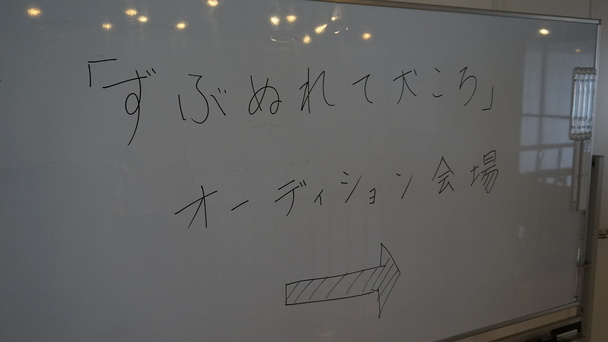 「ずぶぬれて犬ころ」
オーディション会場